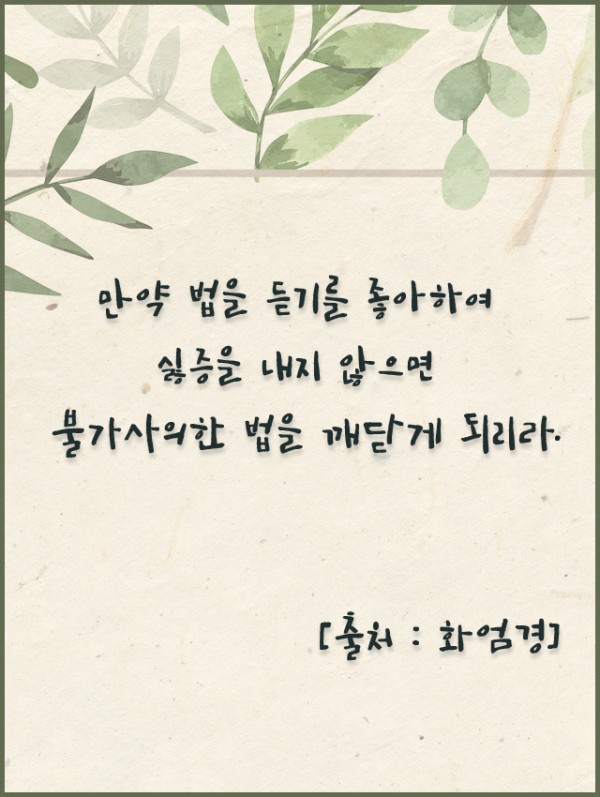 만약 법을 듣기를 좋아하여
싫증을 내지 않으면
불가사의한 법을 깨닫게 되리라.
[출처 : 화엄경]